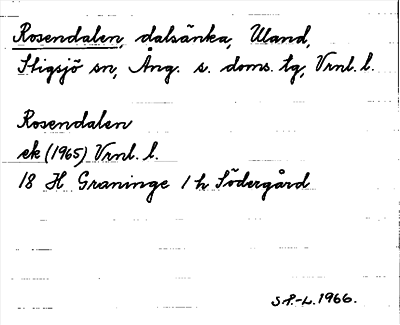 Rosendalen, dalsänka, Uland,
Stigsjö sn, Ång. s. doms. tg, Vrnl. l.
Rosendalen
ek (1965) Vrnl. l.
18 H Graninge 1 h Södergård
S P.-L. 1966.